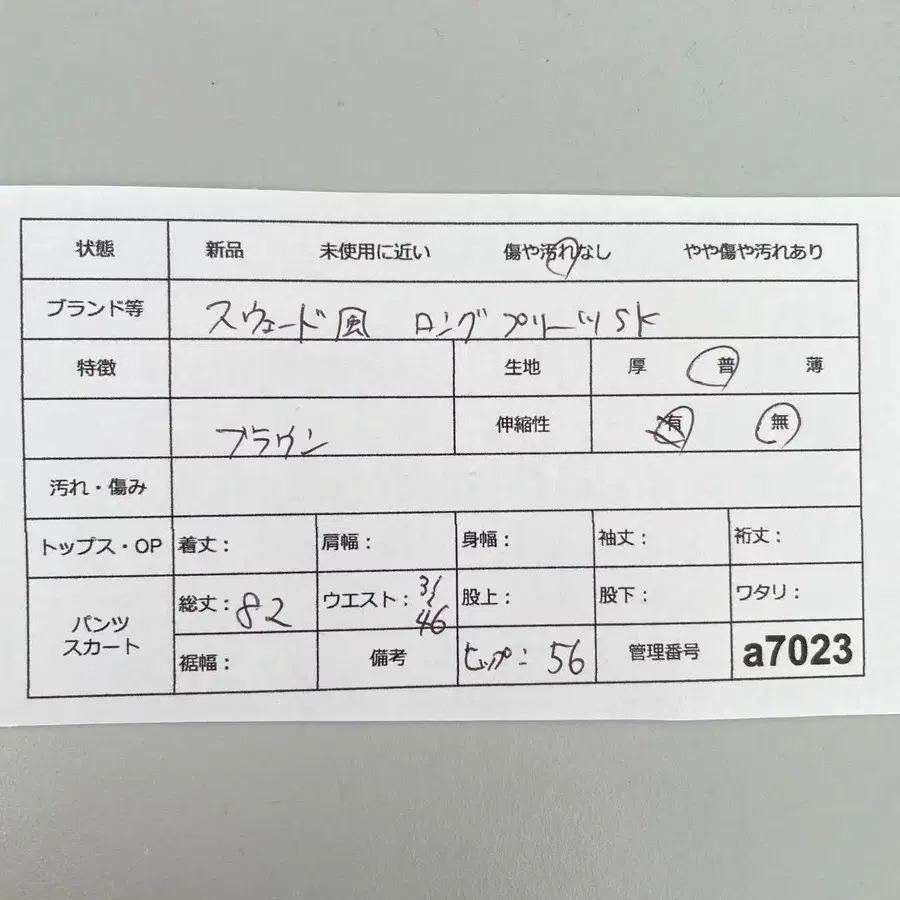 状態 新品 未使用に近い 傷や汚れなし やや傷や汚れあり
ブランド等 スウェード風 ロングプリーツSK
特徴 生地 厚 普 薄
ブラウン 伸縮性 有 無
汚れ・傷み
トップス・OP 着丈: 肩幅: 身幅: 袖丈: 裄丈:
パンツ スカート
総丈:82 ウエスト:31 46 股上: 股下: ワタリ:
裾幅: 備考 ヒップ:56 管理番号 a7023